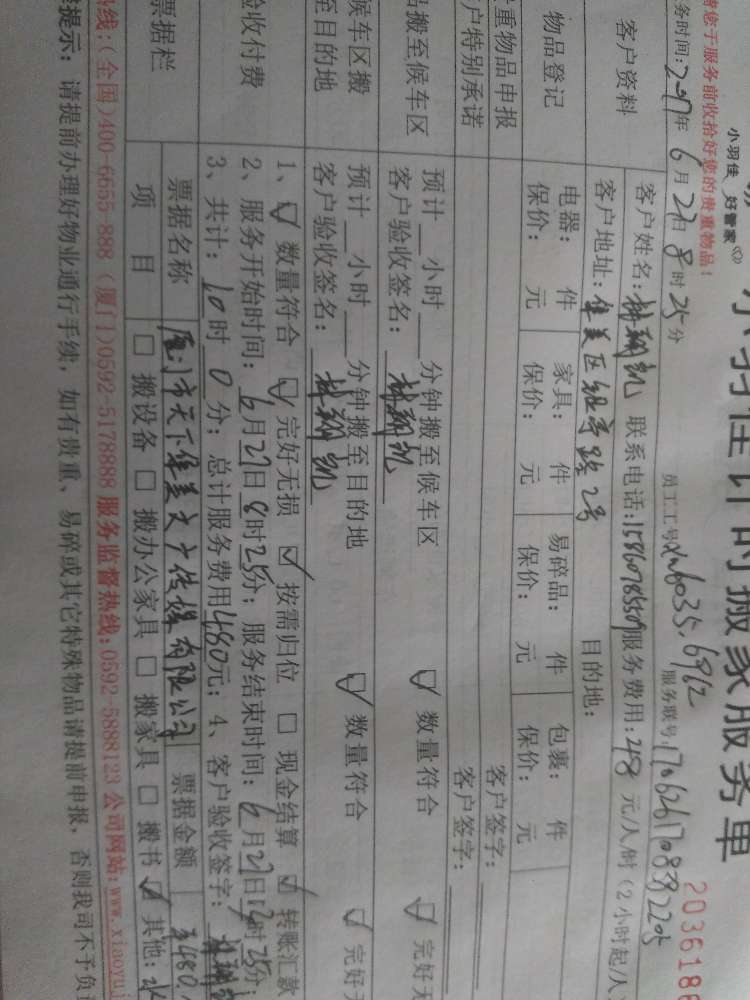 小羽佳计时搬家服务单
小羽佳 好管家
2036188
请您于服务前收拾好您的贵重物品！
务时间:2017年6月27日8时25分 员工工号 服务联号:
客户资料
客户姓名: 联系电话: 服务费用:48元/人/时(2小时起/人
客户地址: 华美区 路2号 目的地:
物品登记
电器: 件 家具: 件 易碎品: 件 包裹: 件
保价: 元 保价: 元 保价: 元 保价: 元
重物品申报 客户签字:
户特别承诺 客户签字:
品搬至候车区
预计 小时 分钟搬至候车区 ☑ 数量符合 ☑ 完好无
客户验收签名:
候车区搬
至目的地
预计 小时 分钟搬至目的地 ☑ 数量符合 ☑ 完好无
客户验收签名:
验收付费
1、☑ 数量符合 ☑ 完好无损 ☑ 按需归位 □ 现金结算 ☑ 转账汇款
2、服务开始时间: 6月27日8时25分; 服务结束时间: 6月27日 时25分;
3、共计: 10时0分; 总计服务费用480元; 4、客户验收签字:
票据栏
票据名称 厦门市天下华美文广传媒有限公司 票据金额 480
项 目 □ 搬设备 □ 搬办公家具 □ 搬家具 □ 搬书 ☑ 其他:
热线:(全国)400-6655-888 (厦门)0592-5178888 服务监督热线:0592-5888123 公司网站:www.xiaoyuj
提示: 请提前办理好物业通行手续, 如有贵重、易碎或其它特殊物品请提前申报, 否则我司不予负